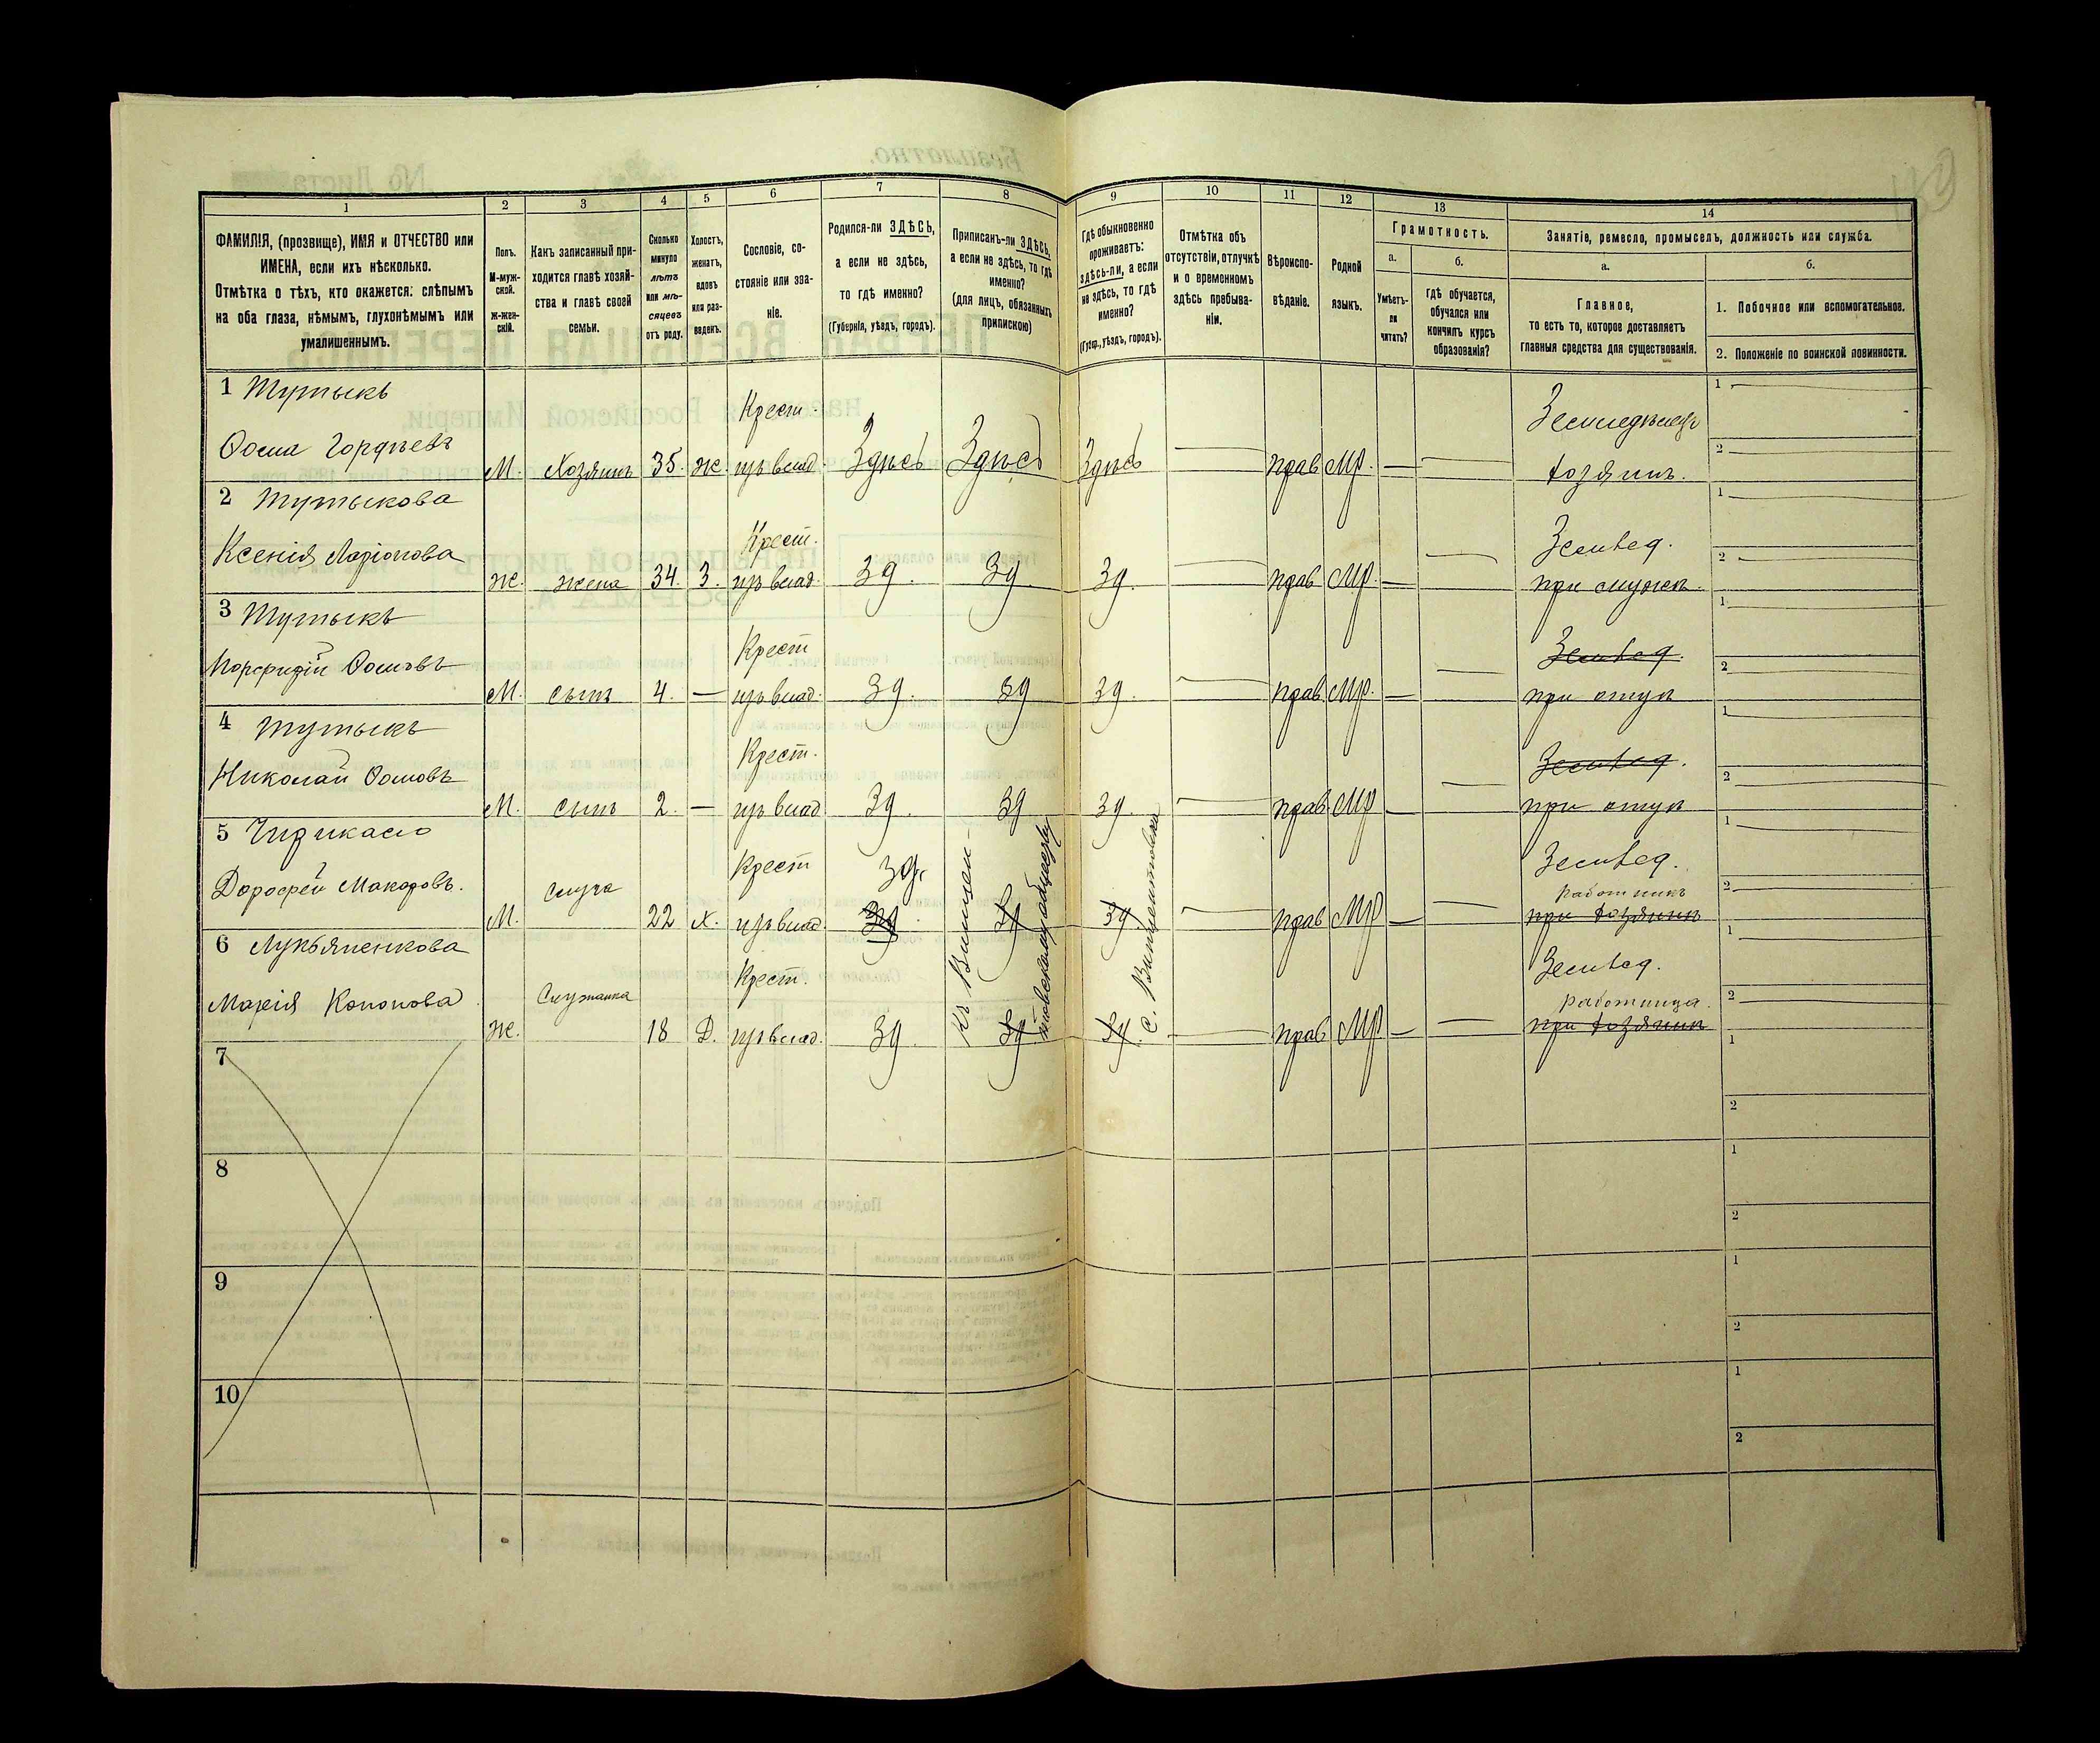 1
2
3
4
5
6
7
8
9
10
11
12
13
14
ФАМИЛІЯ, (прозвище), ИМЯ и ОТЧЕСТВО или
ИМЕНА, если ихъ нѣсколько.
Отмѣтка о тѣхъ, кто окажется: слѣпымъ
на оба глаза, нѣмымъ, глухонѣмымъ или
умалишеннымъ.
Полъ.
М-муж-
ской.
Ж-жен-
скій.
Какъ записанный при-
ходится главѣ хозяй-
ства и главѣ своей
семьи.
Сколько
минуло
лѣтъ
или мѣ-
сяцевъ
отъ роду.
Холостъ,
женатъ,
вдовъ
или раз-
веденъ.
Сословіе, со-
стояніе или зва-
ніе.
Родился-ли ЗДѢСЬ,
а если не здѣсь,
то гдѣ именно?
(Губернія, уѣздъ, городъ).
Приписанъ-ли ЗДѢСЬ,
а если не здѣсь, то гдѣ
именно?
(для лицъ, обязанныхъ
припискою)
Гдѣ обыкновенно
проживаетъ:
здѣсь-ли, а если
не здѣсь, то гдѣ
именно?
(Губер., уѣздъ, городъ).
Отмѣтка объ
отсутствіи, отлучкѣ
и о временномъ
здѣсь пребыва-
ніи.
Вѣроиспо-
вѣданіе.
Родной
языкъ.
Грамотность.
а.
Умѣетъ-
ли
читать?
б.
Гдѣ обучается,
обучался или
кончилъ курсъ
образованія?
Занятіе, ремесло, промыселъ, должность или служба.
а.
Главное,
то есть то, которое доставляетъ
главныя средства для существованія.
б.
1. Побочное или вспомогательное.
2. Положеніе по воинской повинности.
1 Тутыкъ
Ѳома Гордѣевъ
М. Хозяинъ 35. Ж. Крест.
изъ влад. Здѣсь Здѣсь Здѣсь — прав. Мр. — — Земледѣлецъ
хозяинъ.
1 —
2 —
2 Тутыкова
Ксенія Ларіонова
Ж. жена 34. З. Крест.
изъ влад. Зд. Зд. Зд. — прав. Мр. — — Землед.
при мужѣ.
1 —
2 —
3 Тутыкъ
Порфирій Ѳомовъ
М. сынъ 4. — Крест
изъ влад. Зд. Зд. Зд. — прав. Мр. — — Землед.
при отцѣ
1 —
2 —
4 Тутыкъ
Николай Ѳомовъ
М. сынъ 2. — Крест.
изъ влад Зд. Зд. Зд. — прав. Мр — — Землед.
при отцѣ
1 —
2 —
5
Дорофей Макаровъ.
М. слуга 22 Х. Крест
изъ влад. Зд. Зд Зд Зд — прав Мр — — Землед.
работникъ
при хозяинѣ
1 —
2 —
6 Лукьяненкова
Марія Кононова
Ж. Служанка 18 Д. Крест.
изъ влад. Зд. Зд Зд — прав Мр — — Землед.
работница.
при хозяинѣ
1 —
2 —
обществу
7
1
2
8
1
2
9
1
2
10
1
2